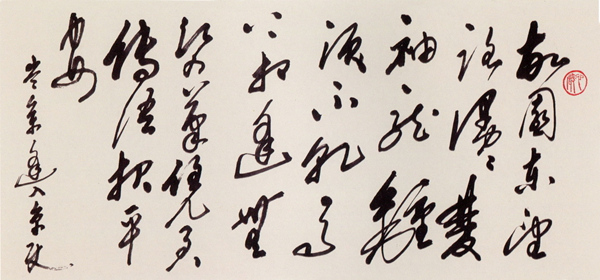 故園東望
路漫〻雙
袖龍鍾
淚不乾馬
上相逢無
紙筆憑君
傳語報平
安
岑參逢入京使